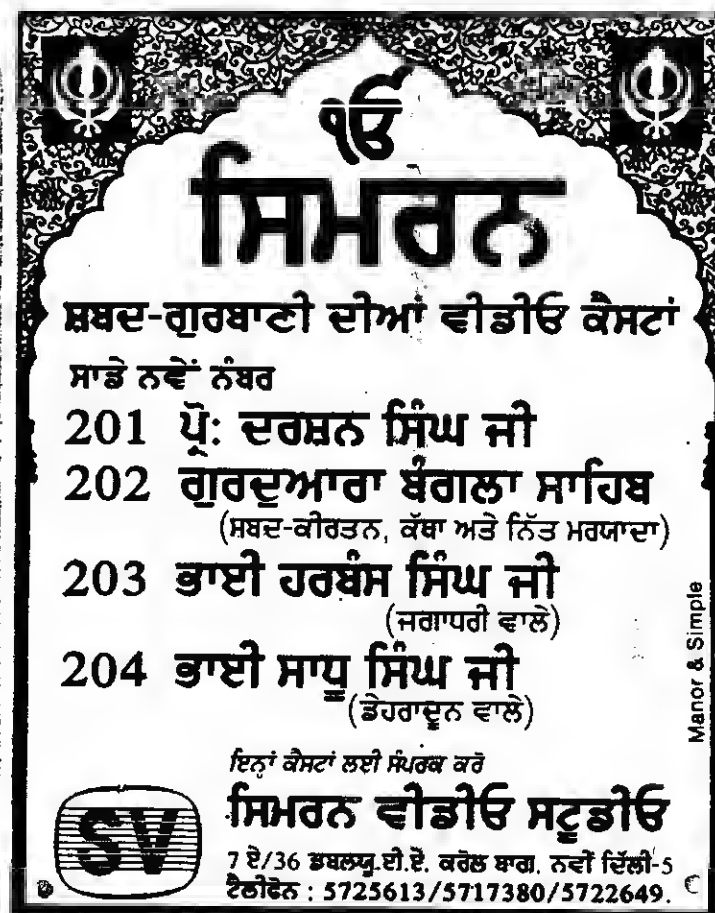 ੴ
ਸਿਮਰਨ
ਸ਼ਬਦ-ਗੁਰਬਾਣੀ ਦੀਆਂ ਵੀਡੀਓ ਕੈਸਟਾਂ
ਸਾਡੇ ਨਵੇਂ ਨੰਬਰ
201 ਪ੍ਰੋ: ਦਰਸ਼ਨ ਸਿੰਘ ਜੀ
202 ਗੁਰਦੁਆਰਾ ਬੰਗਲਾ ਸਾਹਿਬ
(ਸ਼ਬਦ-ਕੀਰਤਨ, ਕੱਥਾ ਅਤੇ ਨਿੱਤ ਮਰਯਾਦਾ)
203 ਭਾਈ ਹਰਬੰਸ ਸਿੰਘ ਜੀ
(ਜਗਾਧਰੀ ਵਾਲੇ)
204 ਭਾਈ ਸਾਧੂ ਸਿੰਘ ਜੀ
(ਡੇਹਰਾਦੂਨ ਵਾਲੇ)
ਇਨ੍ਹਾਂ ਕੈਸਟਾਂ ਲਈ ਸੰਪਰਕ ਕਰੋ
SV
ਸਿਮਰਨ ਵੀਡੀਓ ਸਟੂਡੀਓ
7 ਏ/36 ਡਬਲਯੂ.ਈ.ਏ. ਕਰੋਲ ਬਾਗ. ਨਵੀਂ ਦਿੱਲੀ-5
ਟੈਲੀਫੋਨ : 5725613/5717380/5722649.
Manor & Simple